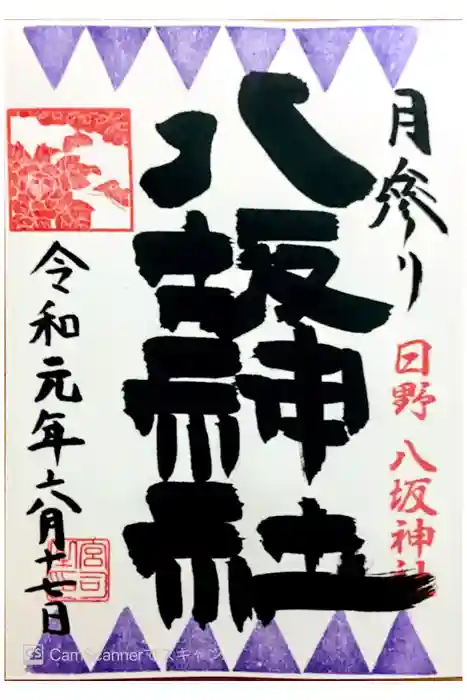 月参り
日野 八坂神社
八坂神社
令和元年六月十七日
宮司
CS CamScannerでスキャン